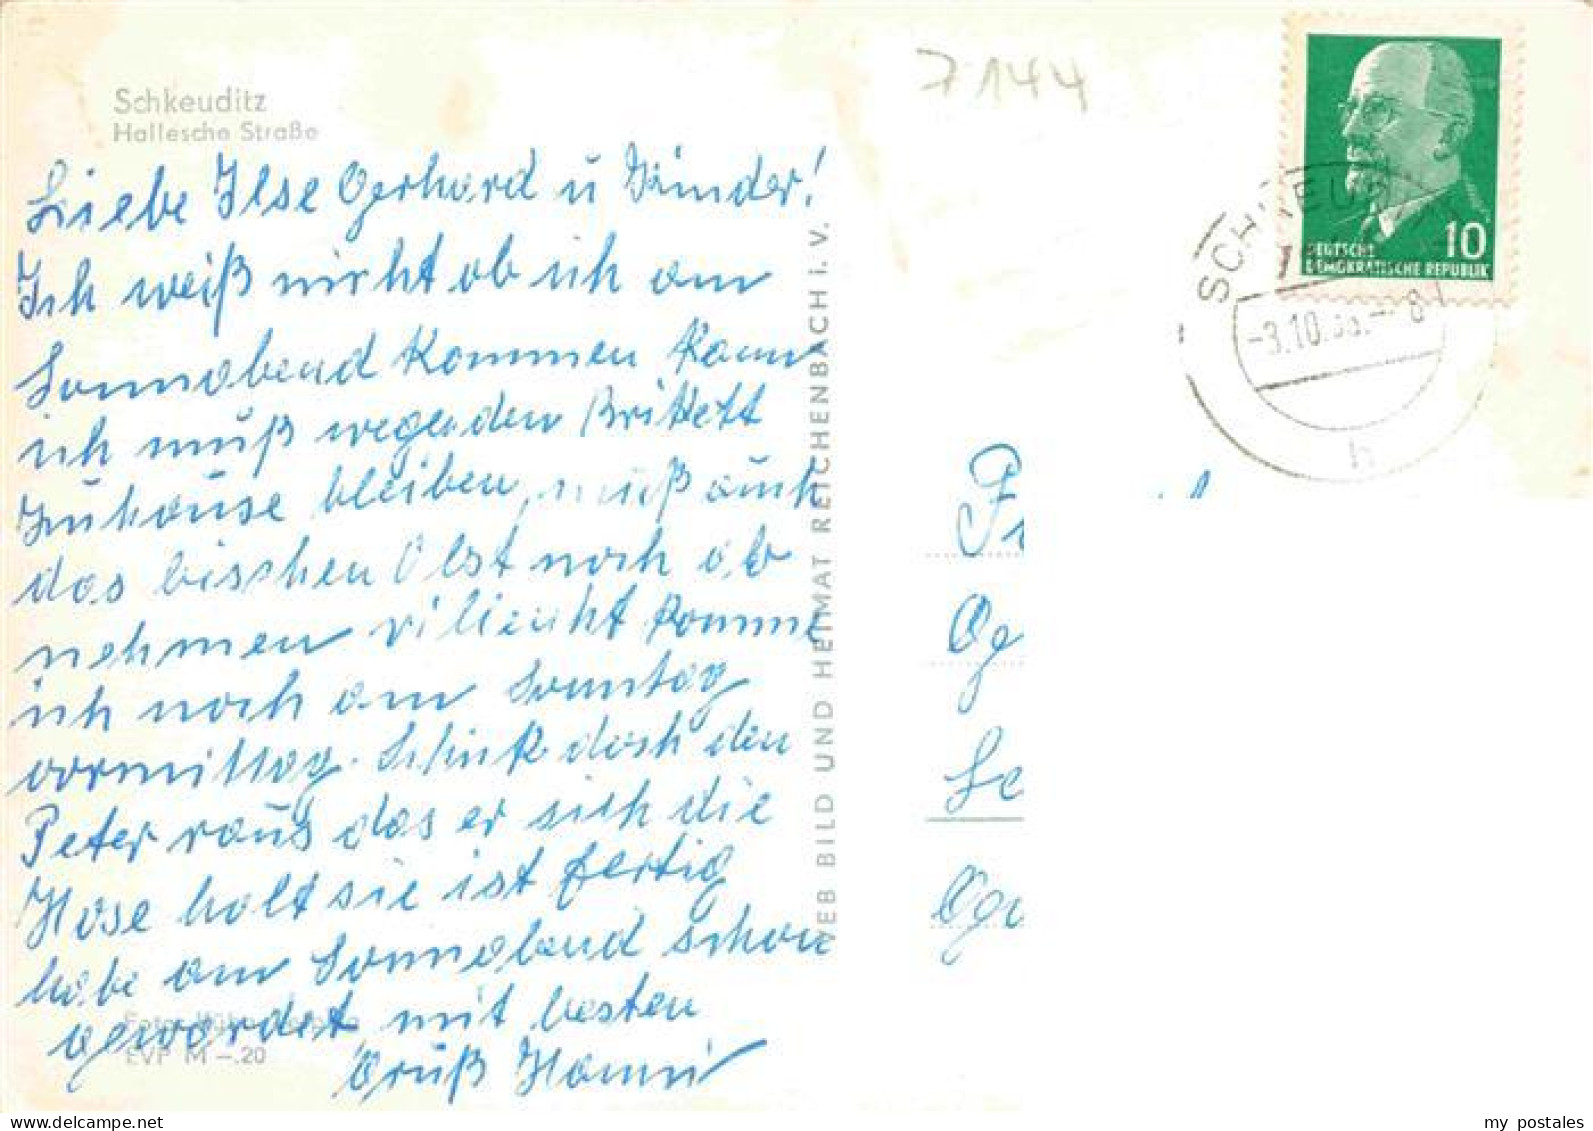 Schkeuditz
Hallesche Straße
7144
Liebe Ilse Gerhard u Kinder!
Ich weiß nicht ob ich am
Sonnabend kommen kann
ich muß wegen den Brikett
zuhause bleiben, muß auch
das bischen Obst noch ab
nehmen vileicht komme
ich noch am Sonntag
vormittag. Schick doch den
Peter raus das er sich die
Hose holt sie ist fertig
habe am Sonnabend schon
gewartet mit besten
Gruß Hanni
EVP M -.20
VEB BILD UND HEIMAT REICHENBACH i. V.
10
DEUTSCHE
DEMOKRATISCHE REPUBLIK
SCHKEUD
-3.10.
h
my postales